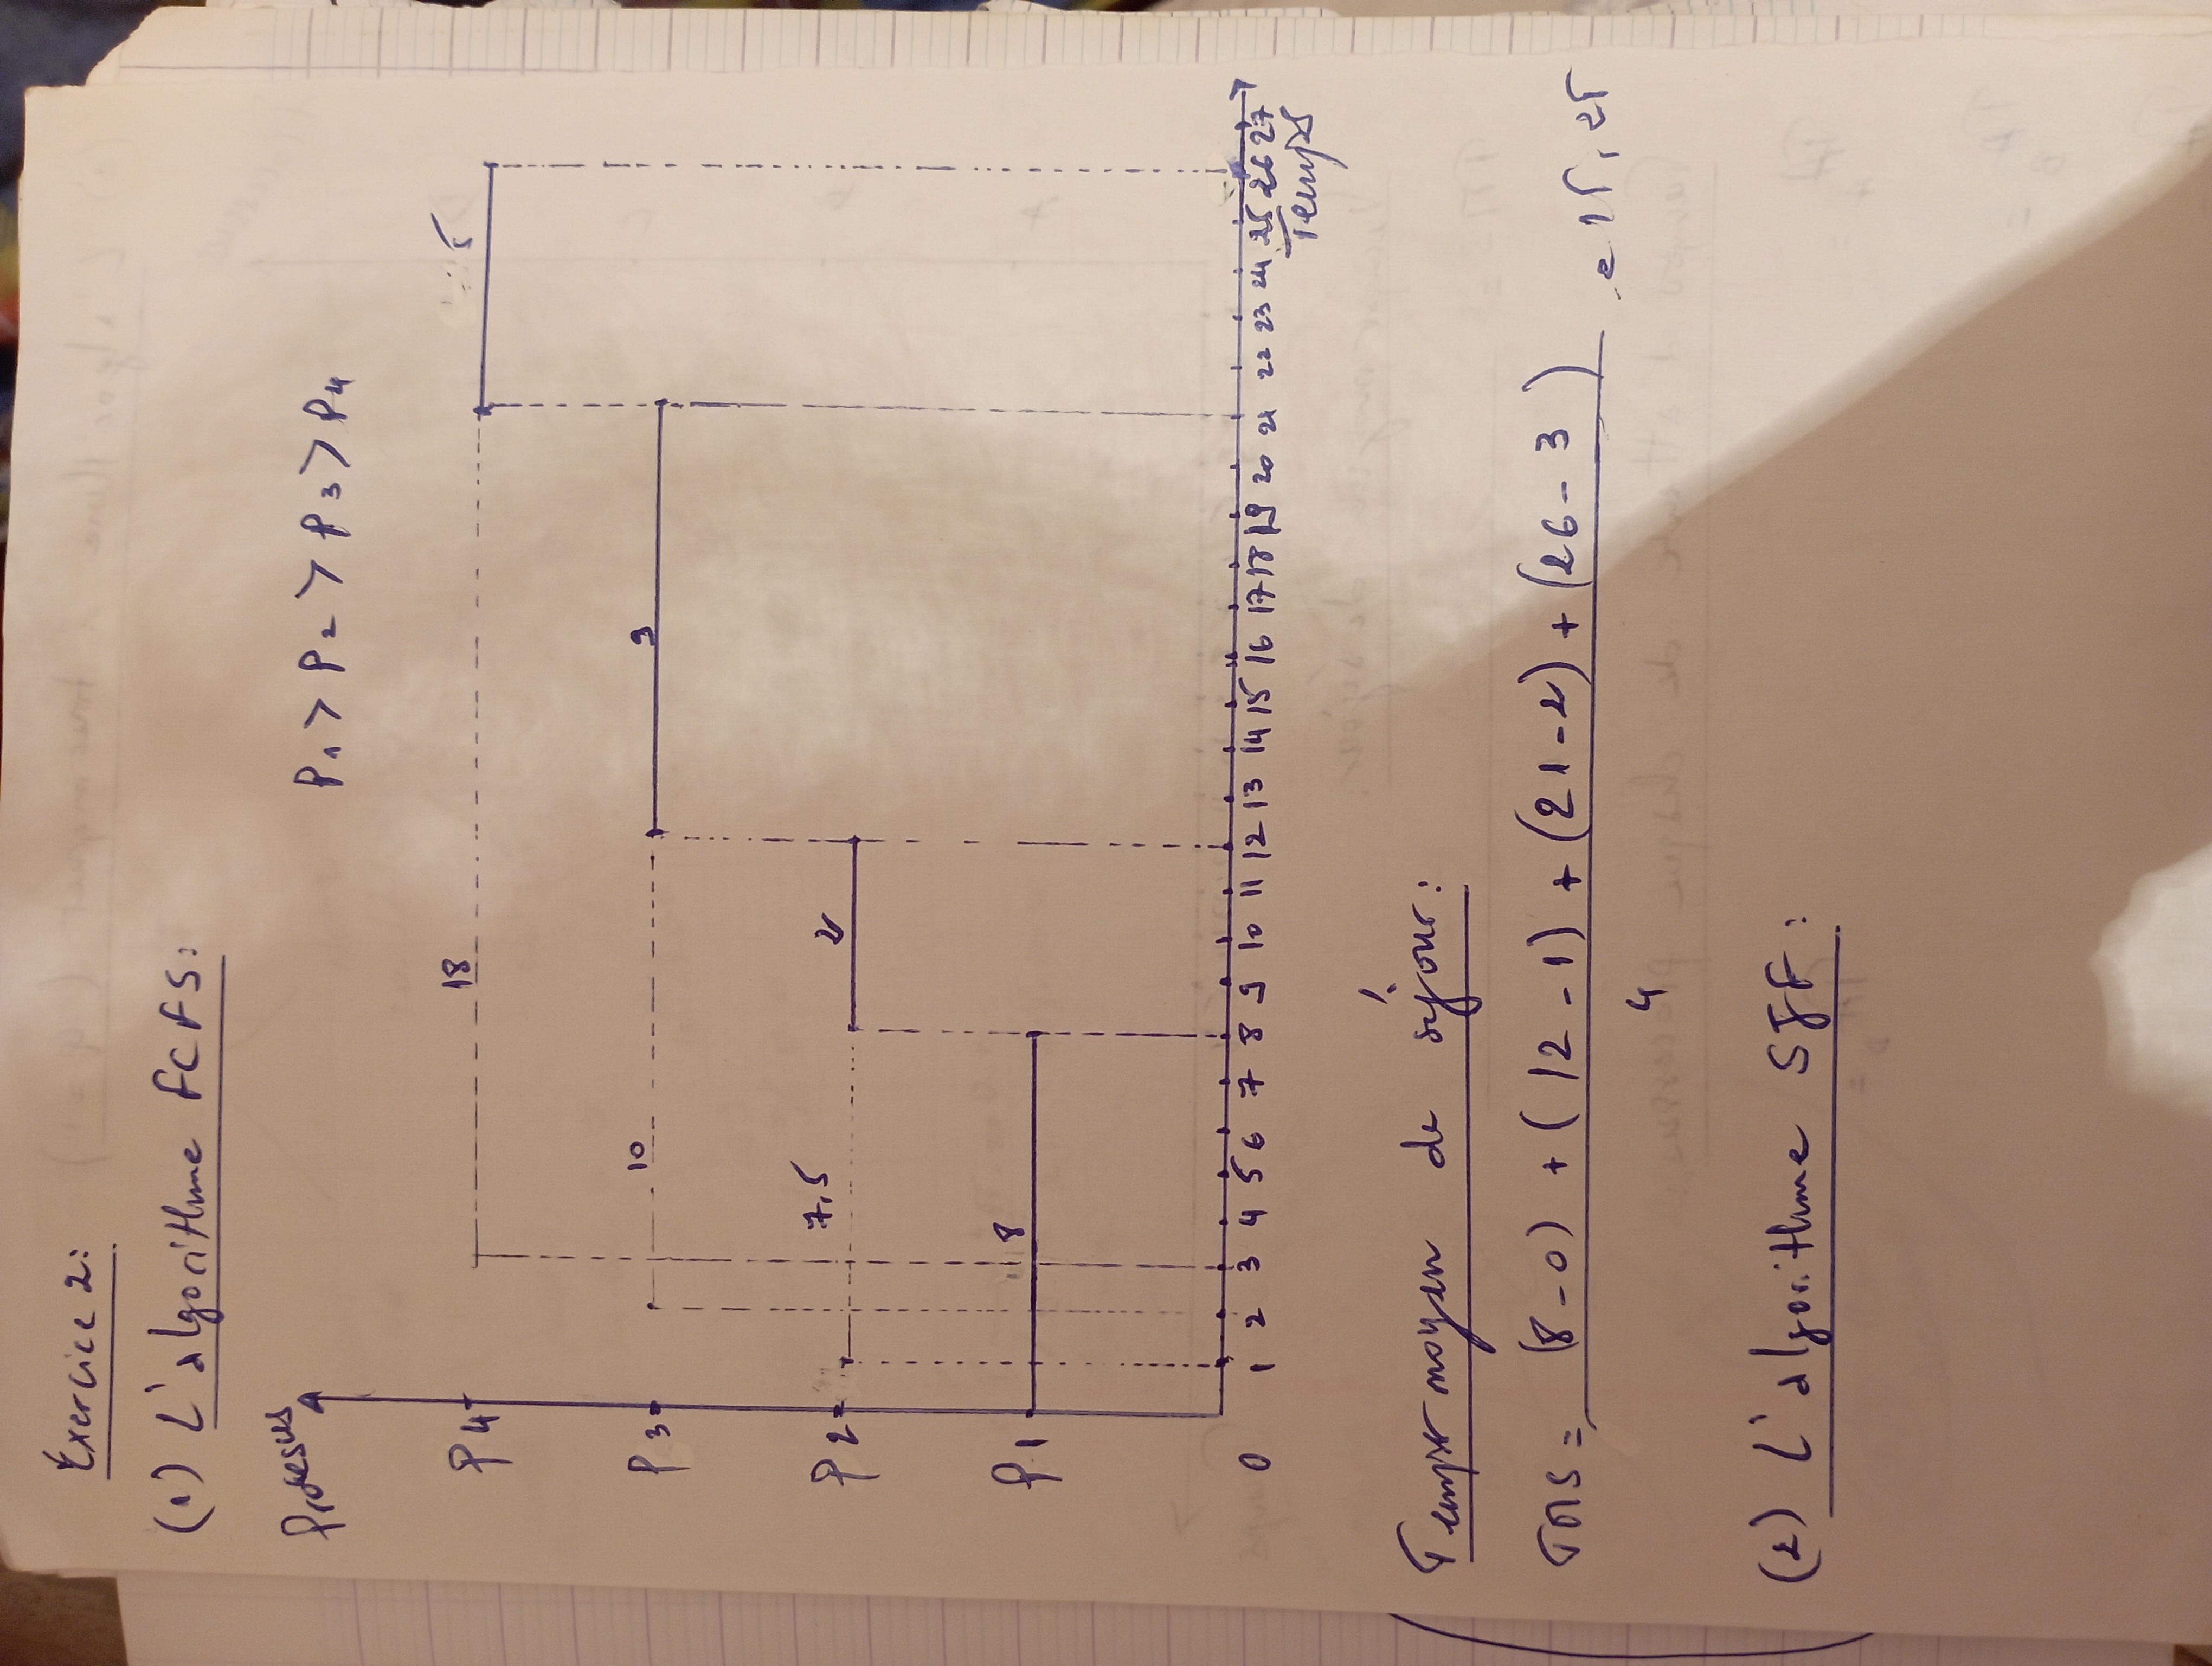 Exercice 2:
(1) L'algorithme FCFS:
Processus
P1 > P2 > P3 > P4
P4 18 5
P3 10 9
P2 7,5 2
P1 8
0 1 2 3 4 5 6 7 8 9 10 11 12 13 14 15 16 17 18 19 20 21 22 23 24 25 26 27
Temps
Temps moyen de séjour:
TMS = (8-0) + (12-1) + (21-2) + (26-3) = 15,25
4
(2) L'algorithme SJF: